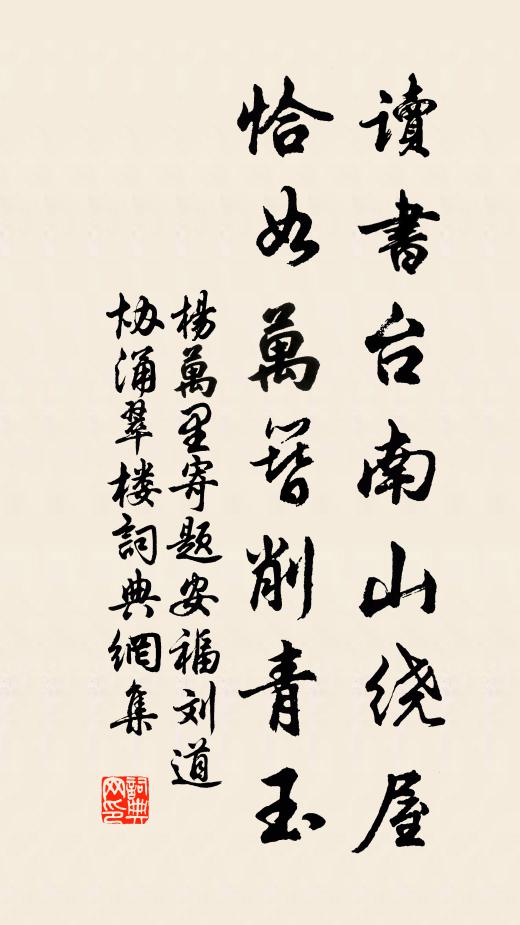 讀書台南山绕屋
恰如萬簪削青玉
楊萬里寄题安福刘道
协涌翠楼詞典網集
詞典网印